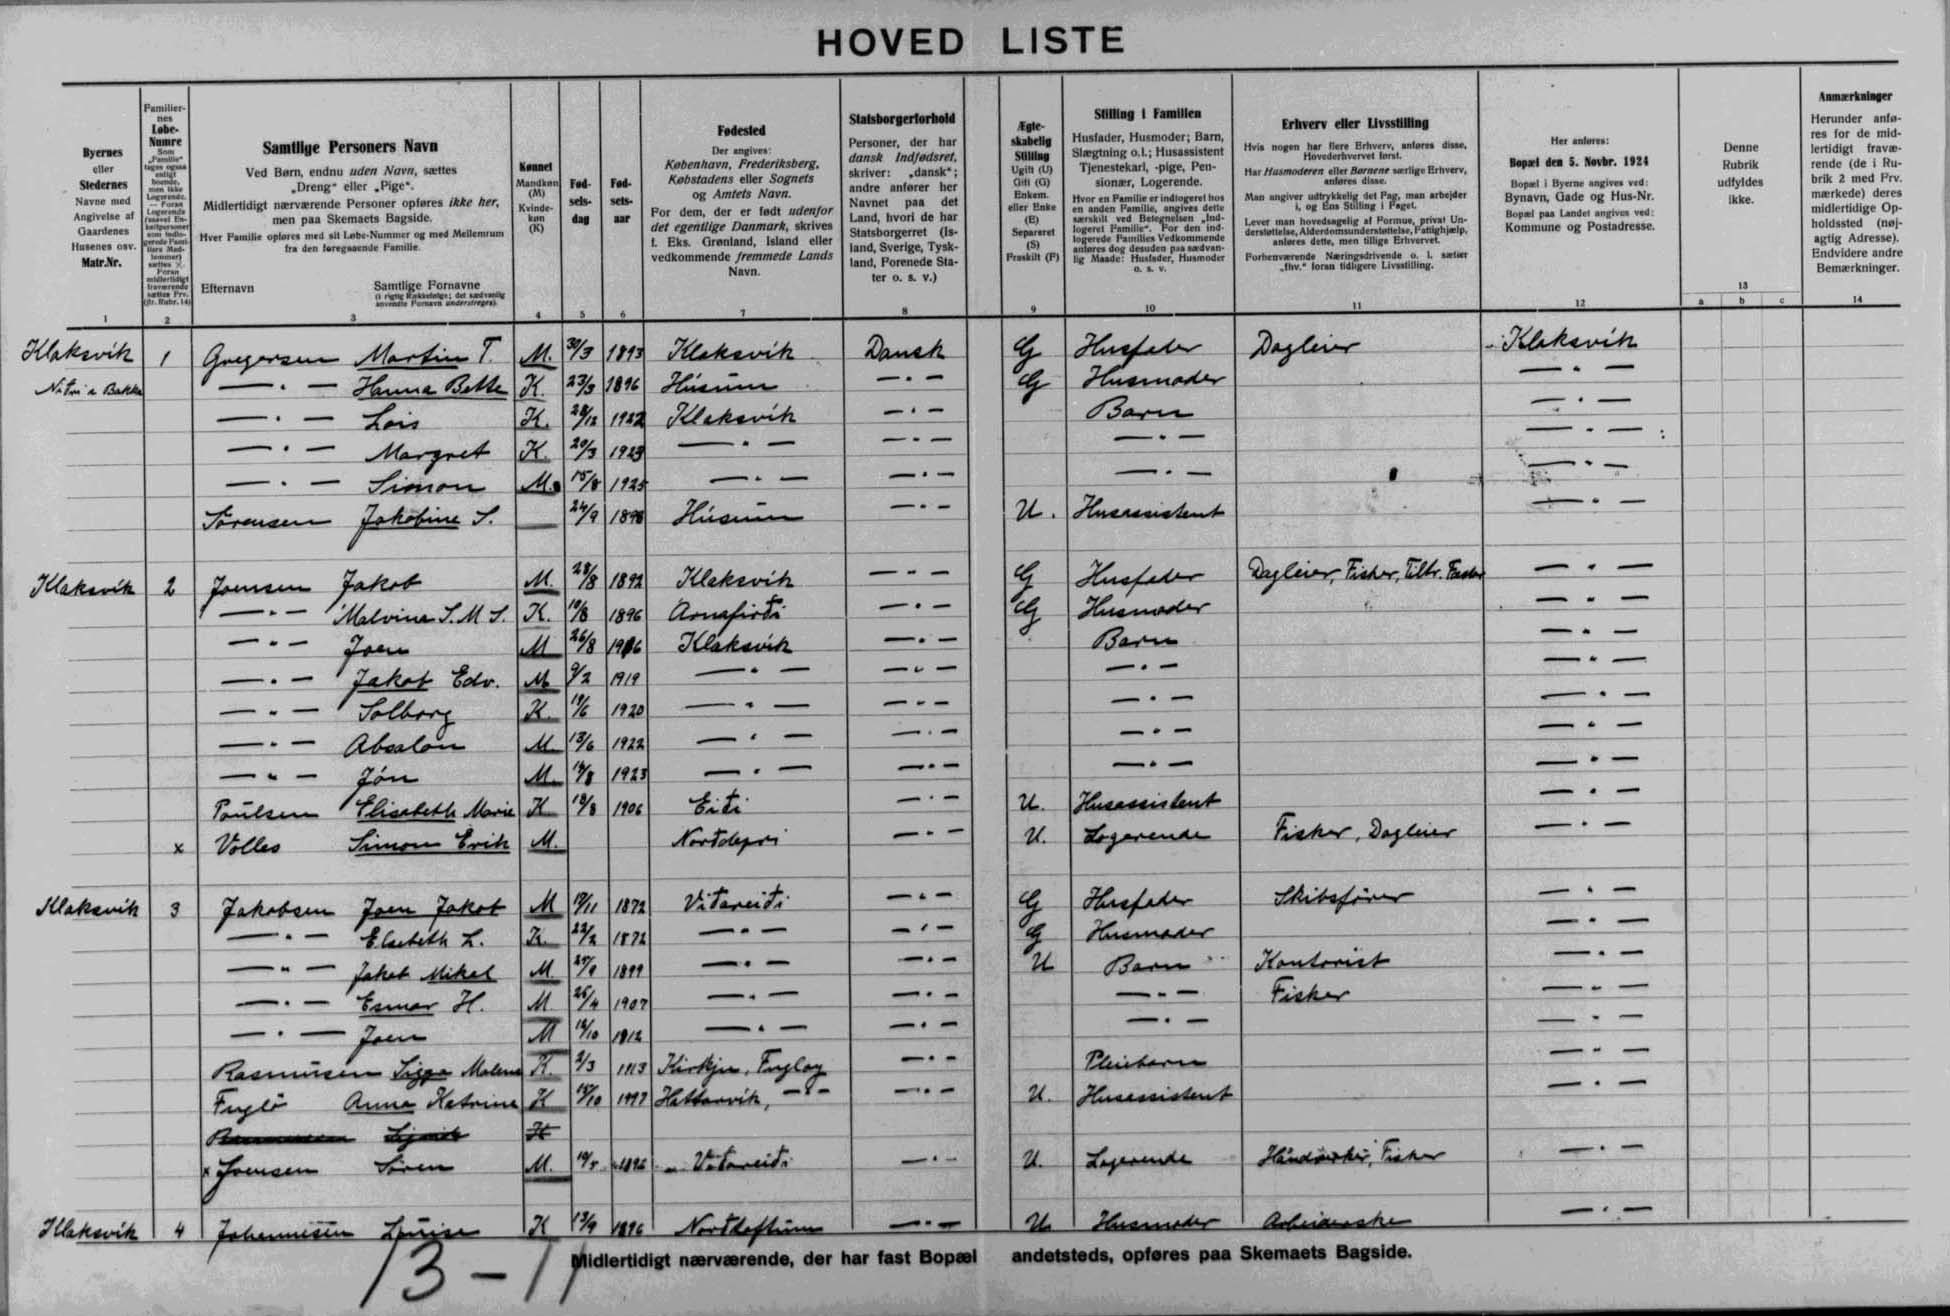 HOVED LISTE
Byernes eller Stedernes Navne med Angivelse af Gaardenes Husenes osv. Matr.Nr.
Familiernes Løbe-Numre
Samtlige Personers Navn
Ved Børn, endnu uden Navn, sættes „Dreng" eller „Pige".
Midlertidigt nærværende Personer opføres ikke her, men paa Skemaets Bagside.
Hver Familie opføres med sit Løbe-Nummer og med Mellemrum fra den foregaaende Familie.
Efternavn Samtlige Fornavne
(i rigtig Rækkefølge; det sædvanlig anvendte Fornavn understreges).
Kønnet
Mandkøn (M) Kvindekøn (K)
Fødselsdag
Fødselsaar
Fødested
Der angives: København, Frederiksberg, Købstadens eller Sognets og Amtets Navn.
For dem, der er født udenfor det egentlige Danmark, skrives f. Eks. Grønland, Island eller vedkommende fremmede Lands Navn.
Statsborgerforhold
Personer, der har dansk Indfødsret, skriver: „dansk"; andre anfører her Navnet paa det Land, hvori de har Statsborgerret (Island, Sverige, Tyskland, Forenede Stater o. s. v.)
Ægteskabelig Stilling
Ugift (U) Gift (G) Enkem. eller Enke (E) Separeret (S) Fraskilt (F)
Stilling i Familien
Husfader, Husmoder; Barn, Slægtning o.l.; Husassistent Tjenestekarl, -pige, Pensionær, Logerende.
Hvor en Familie er indlogeret hos en anden Familie, angives dette særskilt ved Betegnelsen „Indlogeret Familie". For den indlogerede Families Vedkommende anføres dog desuden paa sædvanlig Maade: Husfader, Husmoder o. s. v.
Erhverv eller Livsstilling
Hvis nogen har flere Erhverv, anføres disse, Hovederhvervet først.
Har Husmoderen eller Børnene særlige Erhverv, anføres disse.
Man angiver udtrykkelig det Fag, man arbejder i, og Ens Stilling i Faget.
Lever man hovedsagelig af Formue, privat Understøttelse, Alderdomsunderstøttelse, Fattighjælp, anføres dette, men tillige Erhvervet.
Forhenværende Næringsdrivende o. l. sætter „fhv." foran tidligere Livsstilling.
Her anføres:
Bopæl den 5. Novbr. 1924
Bopæl i Byerne angives ved: Bynavn, Gade og Hus-Nr.
Bopæl paa Landet angives ved: Kommune og Postadresse.
Denne Rubrik udfyldes ikke.
Anmærkninger
Herunder anføres for de midlertidigt fraværende (de i Rubrik 2 med Frv. mærkede) deres midlertidige Opholdssted (nøjagtig Adresse). Endvidere andre Bemærkninger.
1 2 3 4 5 6 7 8 9 10 11 12 13 a b c 14
Klaksvík 1 Gregersen Martin T. M. 30/3 1893 Klaksvík Dansk G Husfader Dagleier Klaksvík
— " — Hanna Bette K. 23/3 1896 Húsum — " — G Husmoder — " —
— " — Lois K. 28/12 1922 Klaksvík — " — Barn — " —
— " — Margret K. 20/3 1923 — " — — " — — " — — " —
— " — Simon M. 15/8 1925 — " — — " — — " — — " —
Sørensen Jakobine S. 24/9 Húsum — " — U. Husassistent — " —
Klaksvík 2 Joensen Jakob M. 28/8 1892 Klaksvík — " — G Husfader Dagleier, Fisker, — " —
— " — Malvina S. M S. K. 10/8 1896 Arnafirði — " — G Husmoder — " —
— " — Joen M 26/8 Klaksvík — " — Barn — " —
— " — Jakob Edv. M 9/2 1919 — " — — " — — " — — " —
— " — Solborg K. 1920 — " — — " — — " — — " —
— " — Absalon M 13/6 1922 — " — — " — — " — — " —
— " — Jón M. 1923 — " — — " — — " — — " —
Poulsen Elisabeth Marie K 1906 Eiði — " — U. Husassistent — " —
x Volles Simon Erik M. Norðdepri — " — U. Logerende Fisker, Dagleier — " —
Klaksvík 3 Jakobsen Joen Jakob M 1872 Viðareiði — " — G Husfader Skibsfører — " —
— " — Elsebeth L. K. 22/2 1872 — " — — " — G Husmoder — " —
— " — Jakob Mikal M. 1899 — " — — " — U Barn Kontorist — " —
— " — Esmar H. M 1907 — " — — " — — " — Fisker — " —
— " — Joen M 1912 — " — — " — — " — — " —
Rasmusen Sigga Malena K. 2/3 1913 Kirkju, Fugloy — " — Pleiebarn — " —
Fuglø Anna Katrina K Hattarvík, — " — — " — U. Husassistent — " —
x Joensen Søren M. 1896 Viðareiði — " — U. Logerende Håndverker, Fisker — " —
Klaksvík 4 Johannesen Louise K 13/9 1896 — " — U Husmoder Arbeiderske — " —
Midlertidigt nærværende, der har fast Bopæl andetsteds, opføres paa Skemaets Bagside.
13-11